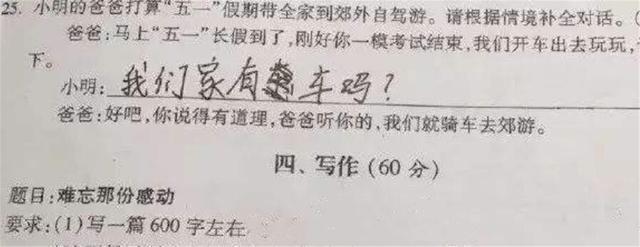 25. 小明的爸爸打算“五一”假期带全家到郊外自驾游。请根据情境补全对话。(
爸爸:马上“五一”长假到了,刚好你一模考试结束,我们开车出去玩玩,
下。
小明:我们家有车吗?
爸爸:好吧,你说得有道理,爸爸听你的,我们就骑车去郊游。
四、写作(60分)
题目:难忘那份感动
要求:(1)写一篇600字左右